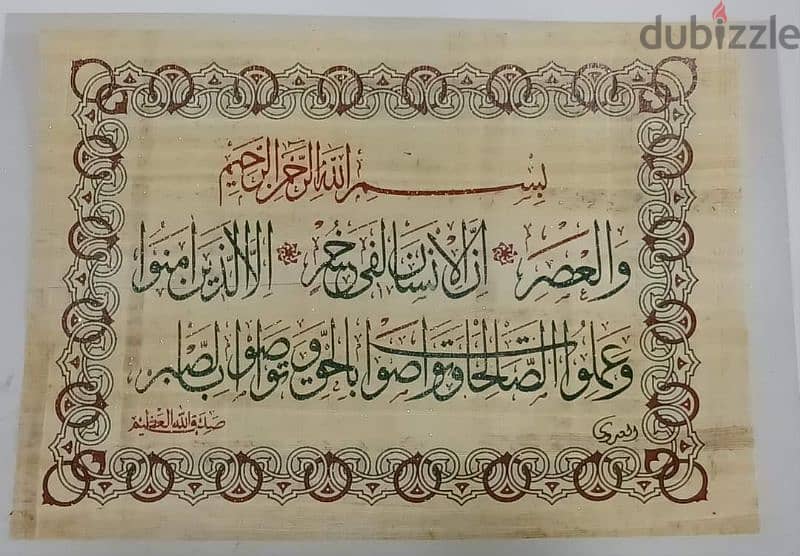 dubizzle
بسم الله الرحمن الرحيم
والعصر إن الإنسان لفي خسر إلا الذين آمنوا
وعملوا الصالحات وتواصوا بالحق وتواصوا بالصبر
صدق الله العظيم